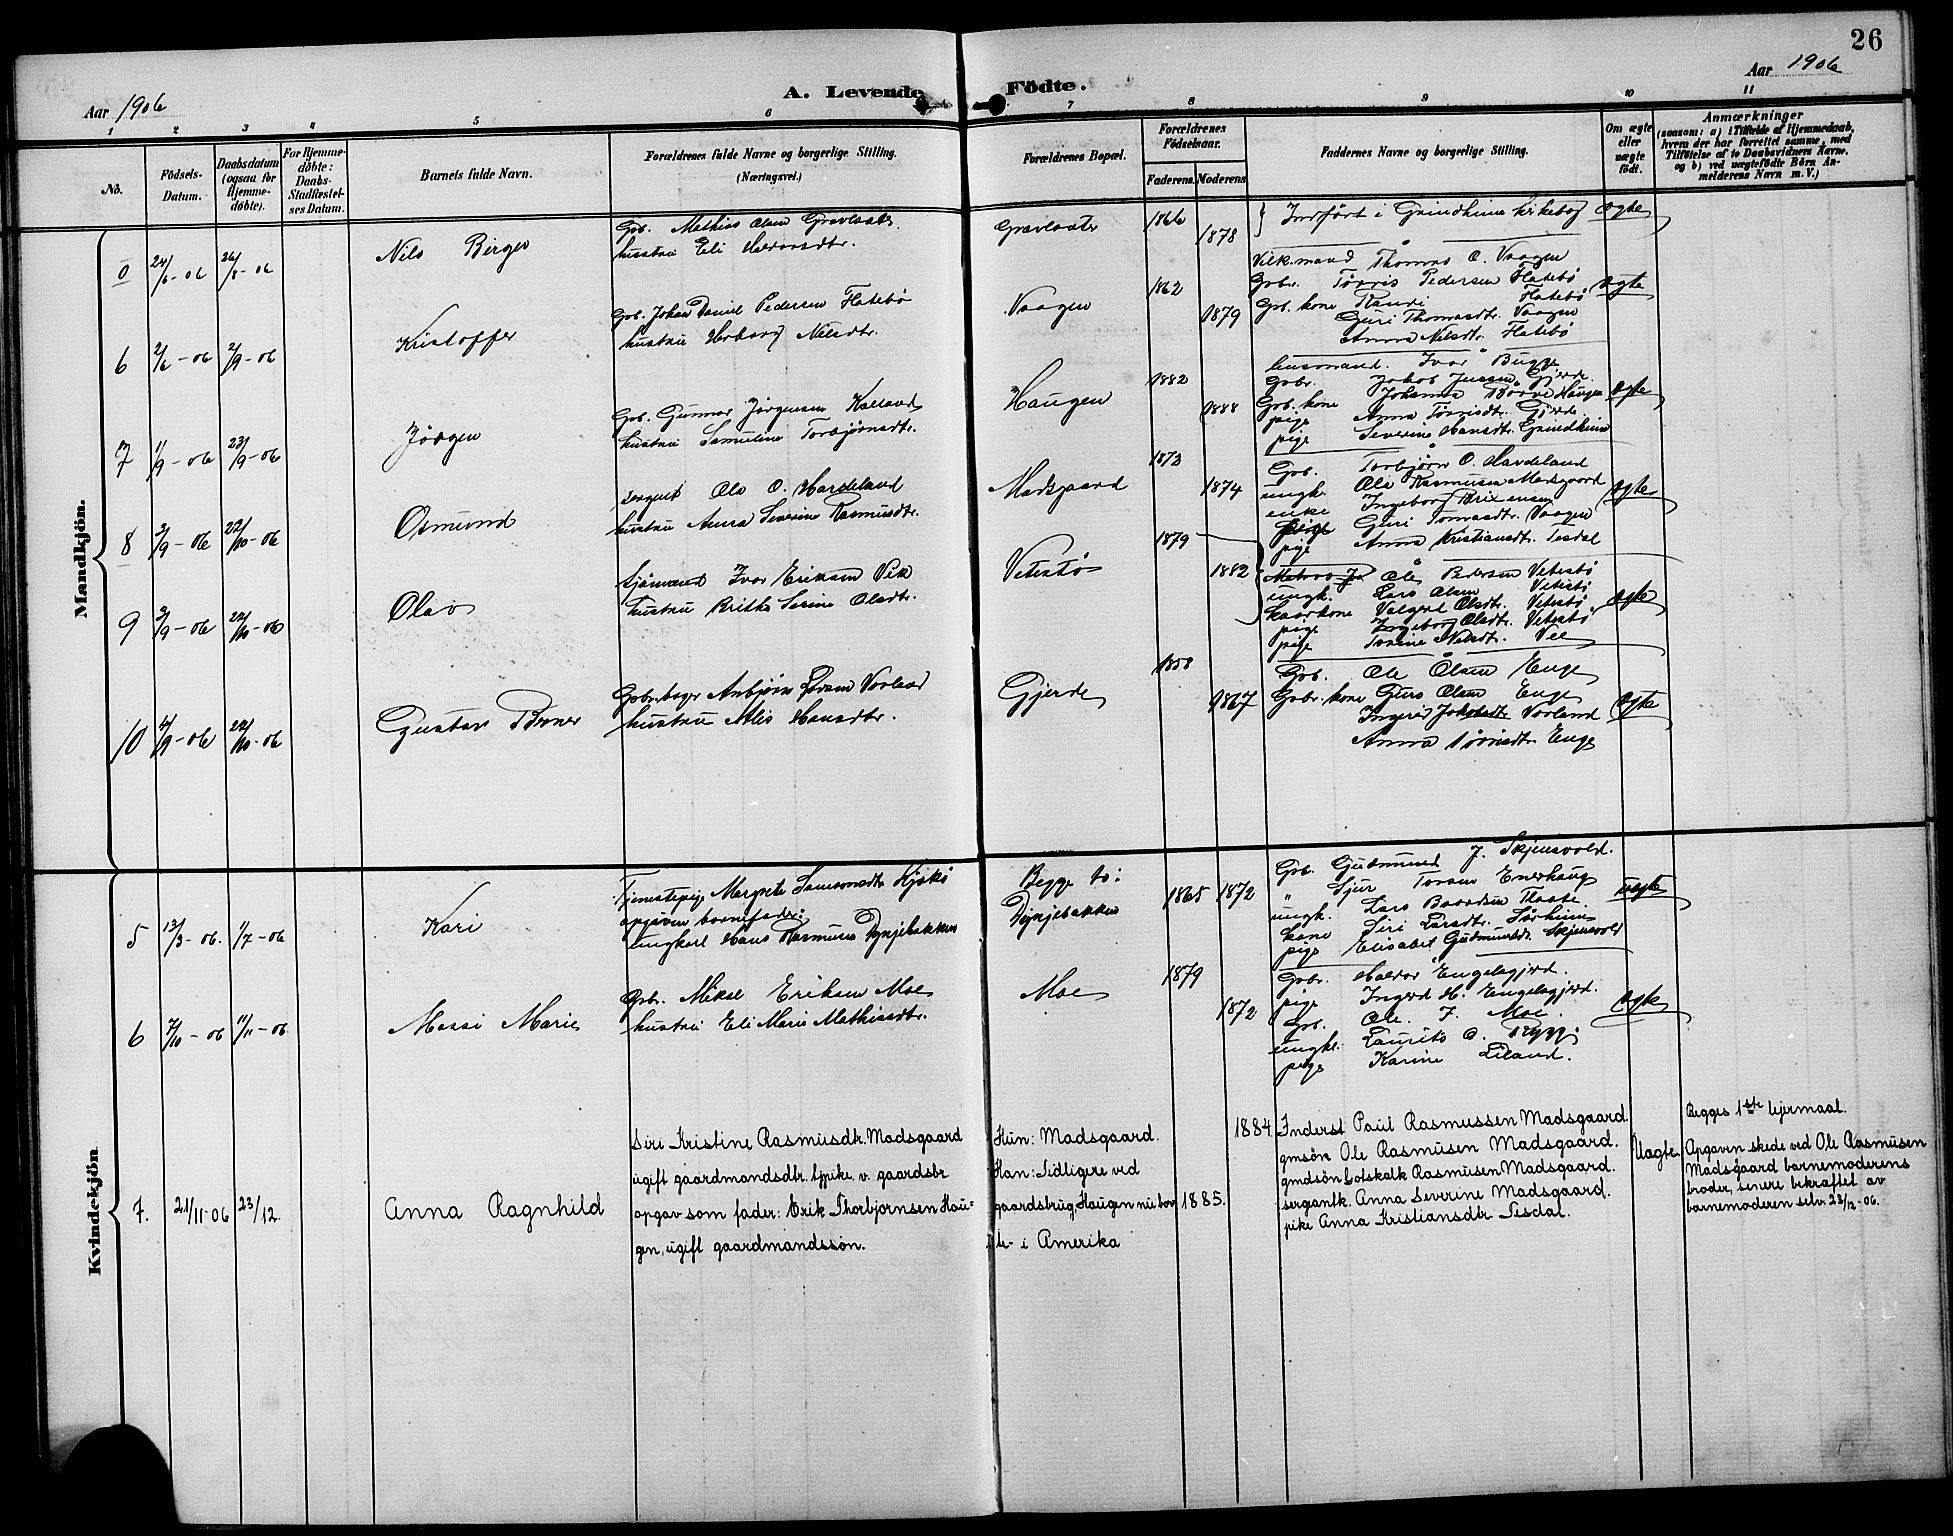 26
Aar 1906
A. Levende Födte.
Aar 1906
1 2 3 4 5 6 7 8 9 10 11
No.
Födsels-
Datum.
Daabsdatum
(ogsaa for
Hjemme-
döbte).
For Hjemme-
döbte:
Daabs-
Stadfæstel-
ses Datum.
Barnets fulde Navn.
Forældrenes fulde Navne og borgerlige Stilling.
(Næringsvei.)
Forældrenes Bopæl.
Forældrenes
Födselsaar.
Faderens. Moderens
Faddernes Navne og borgerlige Stilling.
Om ægte
eller
uægte
födt.
Anmærkninger
(saasom: a) i Tilfælde af Hjemmedaab,
hvem der har forrettet samme, med
Tilföielse af to Daabsvidners Navne.
og b) ved uægtefödte Börn An-
melderens Navn m. V.)
Mandkjön.
0 24/6-06 26/8-06
Nils Birger
Gbr. Mathias Olsen Gravlaater
hustru Eli Halvorsdtr.
Gravlaater
1866
1878
Indført i Grindheims kirkebog
ægte
6 2/6-06 2/9-06
Kristoffer
Gbr. Johan Daniel Pedersen Flatebø
hustru Herborg Nilsdtr.
Vaagen
1862
1879
Thomas O. Vaagen
Gbr. Tørris Pedersen Flatebø
Gbr. kone Randi Flatebø
Guri Thomasdtr. Vaagen
Anna Nilsdtr. Flatebø
ægte
7 1/9-06 23/9-06
Jörgen
Gbr. Gunnar Jørgensen Kalland
hustru Samueline Torbjørnsdtr.
Haugen
1882
1888
husmand. Ivar Bugge
Gbr. Jakob Jensen Gjerde
Gbr. kone Johanna Haugen
pige Anna Tørrisdtr. Gjerde
pige Severine Hansdtr. Grindheim
ægte
8 3/9-06 22/10-06
Osmund
sergent Ole O. Hardeland
hustru Anna Severine Rasmusdtr.
Madsgaard
1873
1874
Gbr. Torbjørn O. Hardeland
ungk. Ole Rasmusen Madsgaard
enke Ingeborg
pige Guri Tomasdtr. Vaagen
pige Anna Kristiansdtr. Tesdal
ægte
9 3/9-06 22/10-06
Olav
Sjømand Ivar Eriksen Vik
hustru Britha Serine Olsdtr.
Vetestø
1879
1882
Ole Pedersen Vetestø
ungk. Lars Olsen Vetestø
Valgerd Olsdtr. Vetestø
pige Ingeborg Olsdtr. Vetestø
pige Torine Nilsdtr. Vee
ægte
10 4/9-06 22/10-06
Gustav
Arbjørn Larsen Vorland
hustru Alis Hansdtr.
Gjerde
1858
1867
Gbr. Ole Olsen Enge
Gbr. kone Guro Olsen Enge
Ingerid Vorland
Anna Tørrisdtr. Enge
ægte
Kvindekjön
5 13/3-06. 1/7-06
Kari
Tjenestepige Margrete Samsonsdtr
opgiven barnefader:
ungkarl Hans Rasmusen Dynjebakken
Begge to:
Dynjebakken
1865 1872
Gbr. Gudmund J. Skjensvold.
" Sjur Torsen Enerhaug
ungk. Lars Baardsen
kone Siri Larsdtr. Sørheim
pige Elisabet Gudmundsdtr. Skjensvold
uægte
6 7/10-06 11/11-06
Massi Marie
Gbr. Mikal Eriksen Moe
hustru Eli Marie Mathisdtr.
Moe
1879
1872
Gbr. Halvor Engelsgjerd.
pige Ingerd H. Engelsgjerd.
Gbr. Ole. J. Moe.
ungk. Laurits O.
pige Karine Eiland.
ægte
7. 21/11-06 23/12.
Anna Ragnhild
Siri Kristine Rasmusdtr. Madsgaard
ugift gaardmandsdtr. tjpike v. gaardsbr.
opgav som fader: Erik Thorbjørnsen Hau-
gen, ugift gaardmandssøn.
Hun: Madsgaard.
Han: Tidligere ved
gaardsbrug, Haugen nu bor
i Amerika
1885.
1884
Inderst Paul Rasmussen Madsgaard.
gmsön Ole Rasmusen Madsgaard.
gmdsön Gotskalk Rasmusen Madsgaard.
sergantk. Anna Severine Madsgaard.
pike Anna Kristiansdtr Tesdal.
Uægte.
Begges 1ste leiermaal.
Opgaven skede ved Ole Rasmusen
Madsgaard barnemoderens
broder, senere bekræftet av
barnemoderen selv 23/12-06.